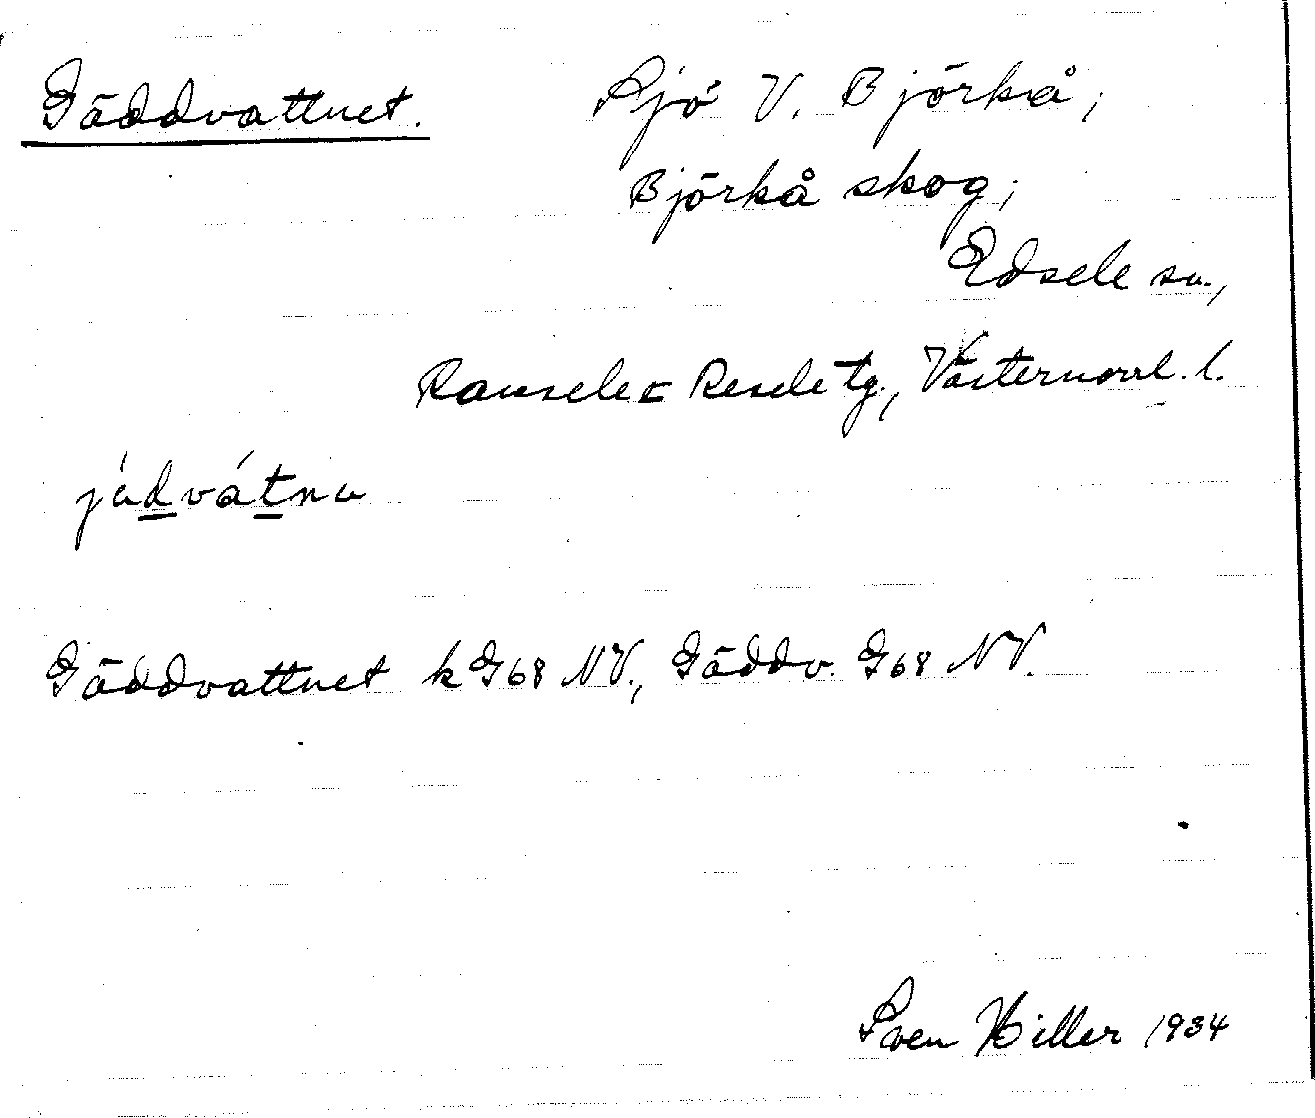 Gäddvattnet. Sjö V. Björkå;
Björkå skog;
Edsele sn.,
Ramsele = Resele tg., Västernorrl. l.
jädvátnu
Gäddvattnet k G68 NV., Gäddv. G68 NV.
Sven Hiller 1934